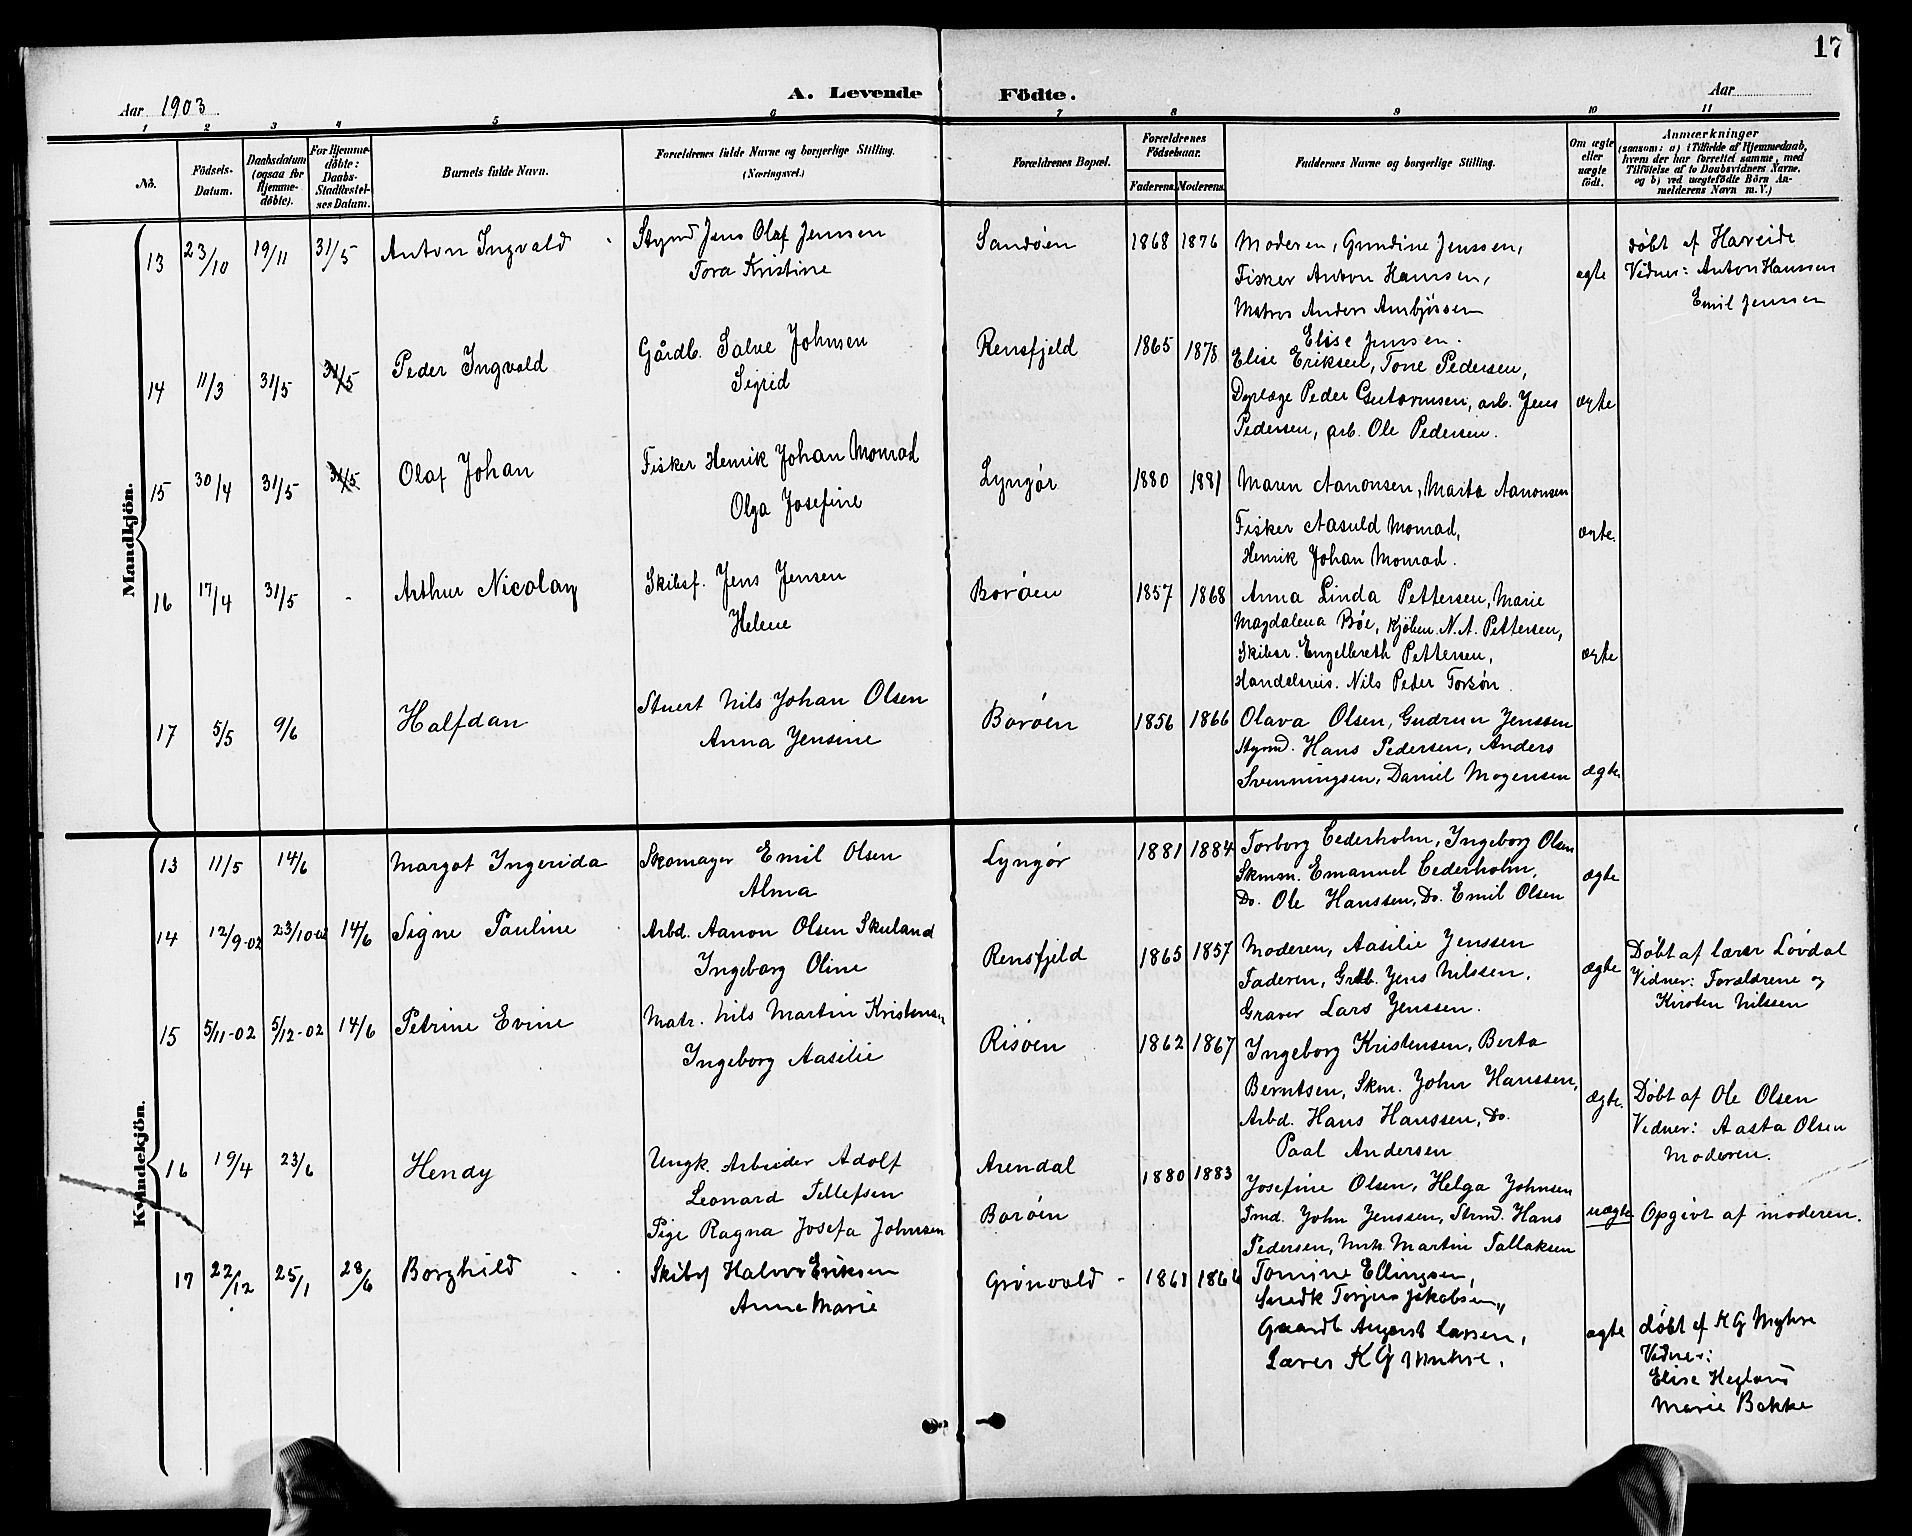 17
Aar 1903
A. Levende Födte.
Aar
1 2 3 4 5 6 7 8 9 10 11
No.
Födsels-Datum.
Daabsdatum (ogsaa for Hjemme-döbte).
For Hjemme-döbte: Daabs-Stadfæstel-ses Datum.
Barnets fulde Navn.
Forældrenes fulde Navne og borgerlige Stilling. (Næringsvei.)
Forældrenes Bopæl.
Forældrenes Födselsaar.
Faderens. Moderens.
Faddernes Navne og borgerlige Stilling.
Om ægte eller uægte födt.
Anmærkninger (saasom: a) i Tilfælde af Hjemmedaab, hvem der har forrettet samme, med Tilföielse af to Daabsvidners Navne, og b) ved uægtefödte Börn An-melderens Navn m. V.)
Mandkjön.
13 23/10 19/11 31/5 Anton Ingvald
Styrmd Jens Olaf Jenssen
Tora Kristine
Sandøen 1868 1876
Moderen, Gundine Jenssen,
Fisker Anton Hanssen,
Matros Anders Ambjørssen
Elise Jenssen.
ægte
døbt af Hareide
Vidner: Anton Hanssen
Emil Jenssen
14 11/3 31/5 31/5 Peder Ingvald
Gårdb. Salve Johnsen
Sigrid
Rensfjeld 1865 1878
Elise Eriksen, Tone Pedersen,
Dyrlæge Peder Guttormsen, arb. Jens
Pedersen, arb. Ole Pedersen.
ægte
15 30/4 31/5 31/5 Olaf Johan
Fisker Henrik Johan Monrad
Olga Josefine
Lyngør 1880 1881
Maren Aanonsen, Marta Aanonsen
Fisker Aasuld Monrad,
Henrik Johan Monrad.
ægte.
16 17/4 31/5 - Arthur Nicolay
Skibsf. Jens Jensen
Helene
Borøen 1857 1868
Anna Linda Pettersen, Marie
Magdalena Bøe, Kjøbm. N. A. Pettersen,
Skibsr. Engelbreth Pettersen,
Handelsreis. Nils Peder Torsøn.
ægte
17 5/5 9/6 Halfdan
Stuert Nils Johan Olsen
Anna Jensine
Borøen 1856 1866
Olava Olsen, Gudrun Jenssen
Styrmd. Hans Pedersen, Anders
Svenningsen, Daniel Mogensen
ægte
Kvindekjön.
13 11/5 14/6 Margot Ingerida
Skomager Emil Olsen
Alma
Lyngør 1881 1884
Torborg Cederholm, Ingeborg Olsen
Skmm. Emanuel Cederholm,
Do. Ole Hanssen, Do. Emil Olsen
ægte
14 12/9-02 23/10-02 14/6 Signe Pauline
Arbd. Aanon Olsen Skuland
Ingeborg Oline
Rensfjeld 1865 1857
Moderen, Aasilie Jenssen
Faderen, Grdb. Jens Nilssen,
Graver Lars Jenssen.
ægte
Døbt af lærer Løvdal
Vidner: Forældrene og
Kirsten Nilssen
15 5/11-02 5/12-02 14/6 Petrine Evine
Matr. Nils Martin Kristensen
Ingeborg Aasilie
Risøen 1862 1867
Ingeborg Kristensen, Berta
Berntsen, Skm. John Hanssen,
Arbd. Hans Hanssen, Do.
Paal Andersen
ægte.
Døbt af Ole Olsen
Vidner: Aasta Olsen
Moderen.
16 19/4 23/6 Hendy
Ungk. Arbeider Adolf
Leonard Tellefsen
Pige Ragna Josefa Johnsen
Arendal
Borøen
1880 1883
Josefine Olsen, Helga Johnsen
Tmd. John Jenssen, Strmd. Hans
Pedersen, Mtr. Martin Tallaksen
uægte Opgivt af moderen.
17 22/12 25/1 28/6 Borghild
Skibsf Halvor Eriksen
Anne Marie
Grønvold 1861 1866
Tomine Ellingsen,
Snedk Torjus Jakobsen,
Gaardb August Larsen,
Lærer K G Myhre.
ægte
døbt af K G Myhre
Vidner:
Elise Hegland
Marie Bakke